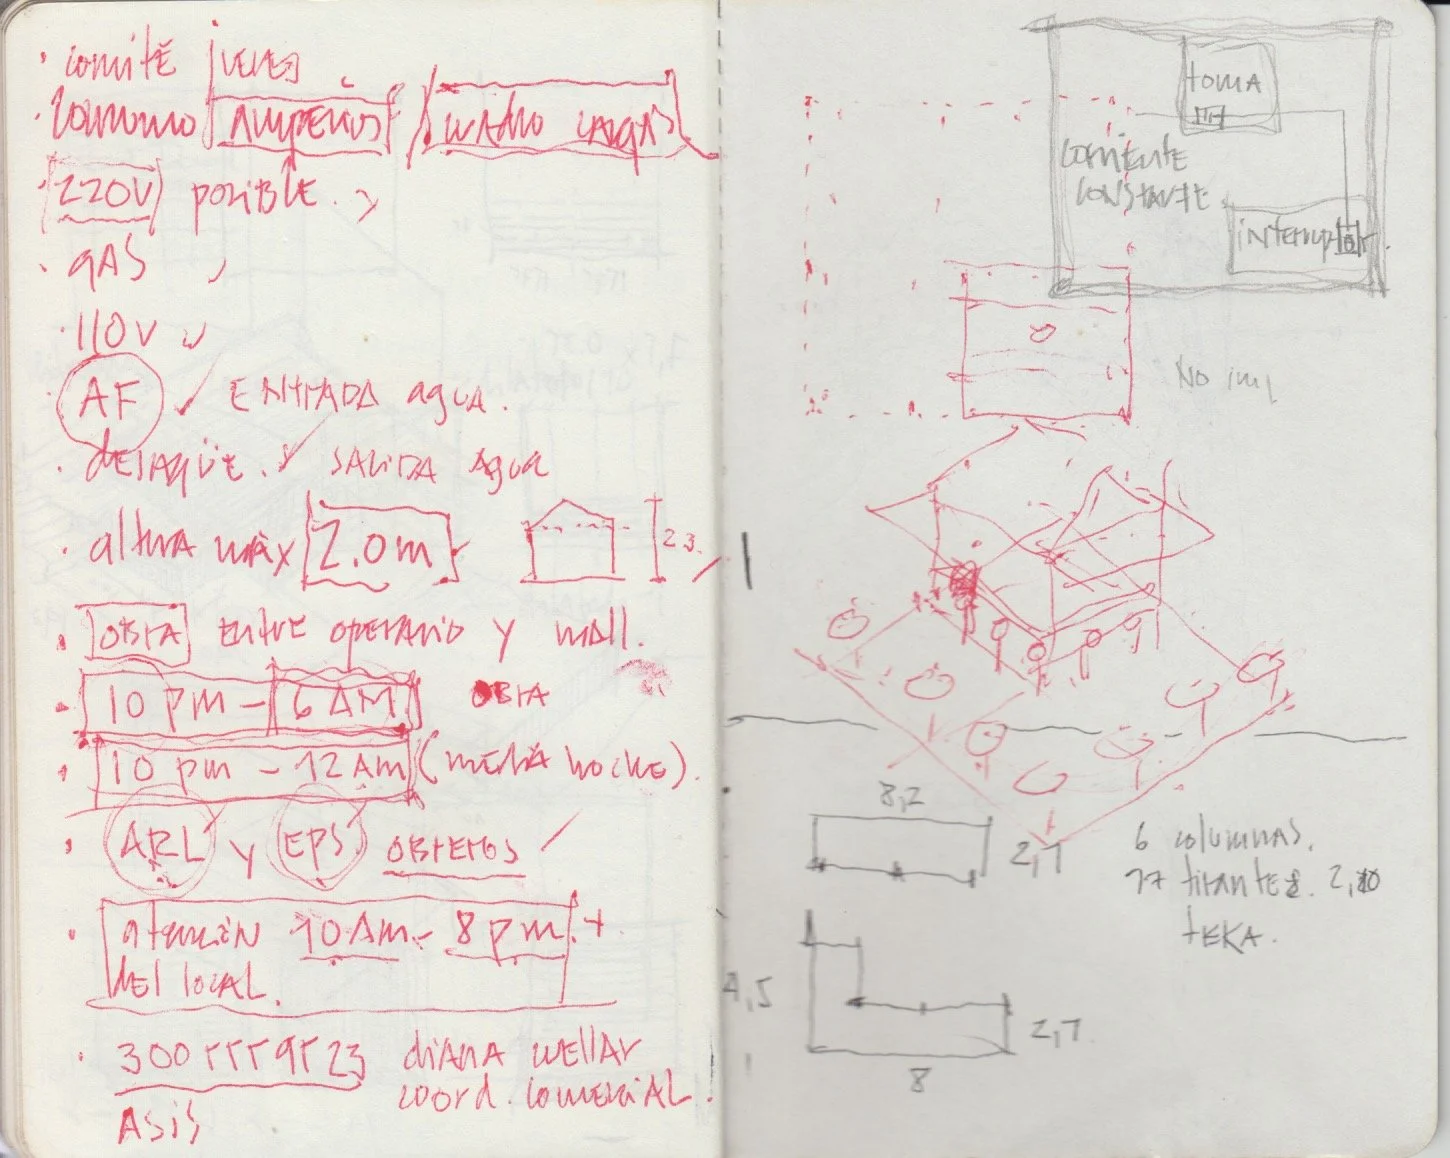 · comité jueves
· Consumo amperios / cuadro cargas
· 220V posible.
· gAS
· 110V
· AF ✓ ENTRADA agua.
· desagüe. ✓ SALIDA Agua
· altura máx 2.0m
2.3.
· OBRA entre operario y mall.
· 10 pm – 6 AM OBRA
· 10 pm – 12 AM (media noche).
· ARL y EPS obreros ✓
· atención 10 AM – 8 pm. +
del local.
· 300 555 9523 diana
coord. comercial.
Asis
toma
corriente
constante
interruptor.
No
8,2
2,7
6 columnas.
17 tirantes. 2,20
TEKA.
4,5
2,7
8